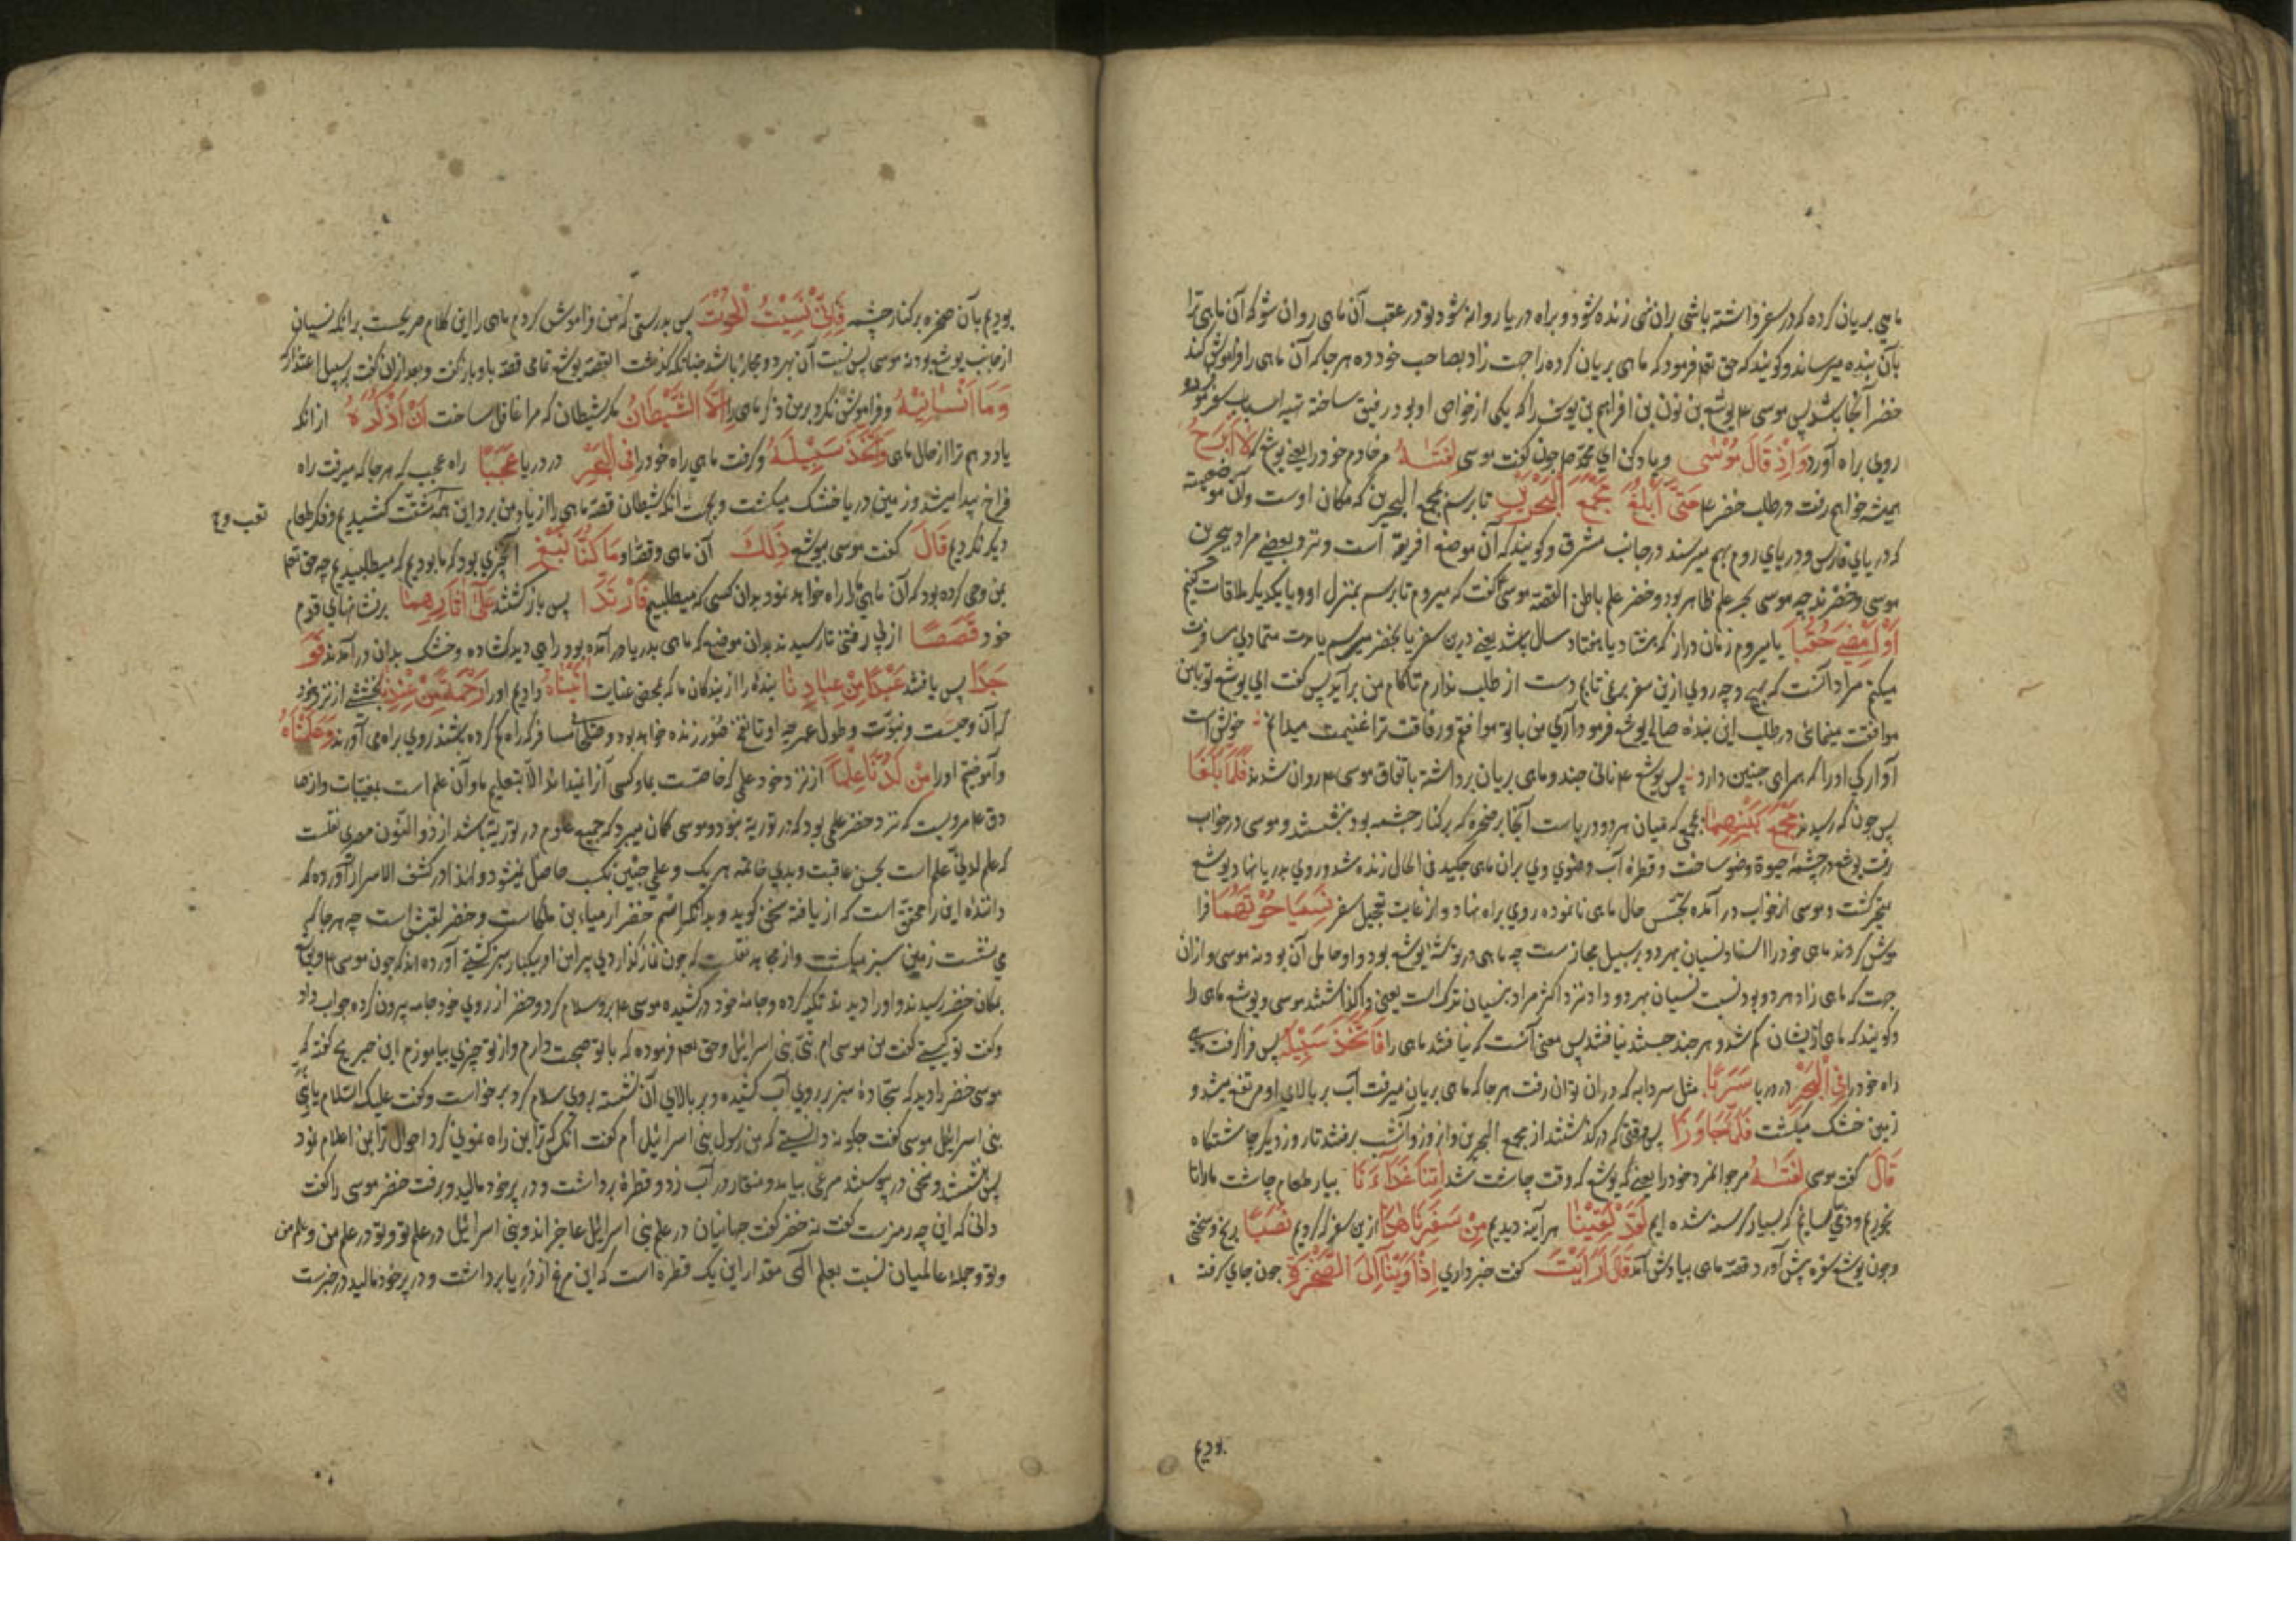 ماهی بریان کرده که در سفر داشته باشی زان نمی زنده شود و براه دریا روانه شود تو در عقب آن ماهی روان شو که آن ماهی ترا
بآن بنده میرساند و کویند که حق تع فرمود که ماهی بریان کرده را جهت زاد بصاحب خود ده هرجا که آن ماهی را فراموش کند
خضر آنجا باشد پس موسی ع یوشع بن نون بن افراهیم بن یوسف را که یکی از خواص او بود رفیق ساخته تهیه اسباب سفر نموده
روی براه آورد وَاِذْ قَالَ مُوْسٰی و یاد کن ای محمد ص چون کفت موسی لِفَتٰىهُ مر خادم خود را یعنی یوشع که لَا اَبْرَحُ
همیشه خواهم رفت در طلب خضر ع حَتّٰی اَبْلُغَ مَجْمَعَ الْبَحْرَیْنِ تا برسم بمجمع البحرین که مکان اوست و آن موضعیست
که دریای فارس و دریای روم بهم میرسند در جانب مشرق و کویند که آن موضع افریقه است و نزد بعضی مراد ببحرین
موسی و خضرند چه موسی بحر علم ظاهر بود و خضر علم باطن القصه موسی کفت که میروم تا برسم بمنزل او و با یکدیکر ملاقات کنیم
اَوْ اَمْضِیَ حُقُبًا یا میروم زمان دراز که هشتاد یا هفتاد سال باشد یعنی درین سفر یا بخضر میرسم یا مدت متمادی مسافرت
میکنم مراد آنست که بهیچ وجه روی ازین سفر برنمی تابم و دست از طلب ندارم تا کام من برآید پس کفت ای یوشع تو با من
موافقت مینمائی در طلب این بنده صالح یوشع فرمود آری من با تو موافقم و رفاقت ترا غنیمت میدانم خوش است
آوارکی اورا که همراهی چنین دارد پس یوشع ع نانی چند و ماهی بریان برداشته باتفاق موسی ع روان شدند فَلَمَّا بَلَغَا
پس چون که رسیدند مَجْمَعَ بَیْنِهِمَا بمجمعی که میان هر دو دریاست آنجا بر صخره که بر کنار چشمه بود بنشستند و موسی در خواب
رفت یوشع در چشمه حیوة وضو ساخت و قطره آب وضوی وی بران ماهی چکید فی الحال زنده شد و روی بدریا نهاد یوشع
متحیر کشت و موسی از خواب در آمده تجسس حال ماهی نانموده روی براه نهاد و از غایت تعجیل سفر نَسِیَا حُوْتَهُمَا فرا
موش کردند ماهی خود را اسناد نسیان بهر دو بر سبیل مجازست چه ماهی در توشه یوشع بود و او حامل آن بود نه موسی و ازان
جهت که ماهی زاد هر دو بود نسبت نسیان بهر دو داد نزد اکثر مراد بنسیان ترکست یعنی وا کذاشتند موسی و یوشع ماهی را
و کویند که ماهی ازیشان کم شد و هر چند جستند نیافتند پس معنی آنست که نیافتند ماهی را فَاتَّخَذَ سَبِیْلَهُ پس فرا کرفت
راه خود را فِی الْبَحْرِ در دریا سَرَبًا مثل سردابه که دران توان رفت هرجا که ماهی بریان میرفت آب بر بالای او مرتفع میشد و
زمین خشک میکشت فَلَمَّا جَاوَزَا پس وقتی که در کذشتند از مجمع البحرین و آنروز و آنشب برفتند تا روز دیکر چاشتکاه
قَالَ کفت موسی لِفَتٰىهُ مر جوانمرد خود را یعنی که یوشع که وقت چاشت شد اٰتِنَا غَدَآءَنَا بیار طعام چاشت ما را تا
بخوریم که بسیار کرسنه شده ایم لَقَدْ لَقِیْنَا هر آینه دیدیم مِنْ سَفَرِنَا هٰذَا ازین سفر که کردیم نَصَبًا رنج و سختی
و چون یوشع سفره پیش آورد قصه ماهی بیادش آمد قَالَ اَرَاَیْتَ کفت خبر داری اِذْ اَوَیْنَآ اِلَی الصَّخْرَةِ چون جای کرفته
بودیم
بودیم بآن صخره بر کنار چشمه فَاِنِّیْ نَسِیْتُ الْحُوْتَ پس بدرستی که من فراموش کردم ماهی را این کلام صریحست برانکه نسیان
از جانب یوشع بود نه موسی پس نسبت آن بهر دو مجاز باشد چنانکه کذشت القصه یوشع تمامی قصه باو باز کفت و بعد ازان کفت بر سبیل اعتذار که
وَمَا اَنْسٰنِیْهُ و فراموش نکرد بر من ذکر ماهی را اِلَّا الشَّیْطٰنُ مکر شیطان که مرا غافل ساخت اَنْ اَذْکُرَهُ ازانکه
یاد دهم ترا از حال ماهی وَاتَّخَذَ سَبِیْلَهُ و کرفت ماهی راه خود را فِی الْبَحْرِ در دریا عَجَبًا راه عجب که هرجا که میرفت راه
فراخ پیدا میشد و زمین دریا خشک میکشت و بجهت آنکه شیطان قصه ماهی را از یاد من برد این همه مشقت کشیدیم و فکر طعام
تعب و ع
دیکر نکردیم قَالَ کفت موسی بیوشع ذٰلِكَ آن ماهی و قصه او مَا کُنَّا نَبْغِ آنچیزی بود که ما بودیم که میطلبیدیم چه حق تعا
بمن وحی کرده بود که آن ماهی ما را راه خواهد نمود بدان کسی که میطلبیم فَارْتَدَّا پس باز کشتند عَلٰی اٰثَارِهِمَا بر نشانهای قدم
خود قَصَصًا از پی رفتنی تا رسیدند بدان موضع که ماهی بدریا در آمده بود راهی دید کشاده و خشک بدان در آمدند فَوَ
جَدَا پس یافتند عَبْدًا مِنْ عِبَادِنَا بنده را از بندکان ما که بمحض عنایت اٰتَیْنٰهُ دادیم اورا رَحْمَةً مِنْ عِنْدِنَا بخششی از نزد خود
که آن وحیست و نبوت و طول عمر چه او تا نفخ صور زنده خواهد بود و مسافر که راه کم کرده باشند روی براه می آورند وَعَلَّمْنٰهُ
و آموختیم اورا مِنْ لَدُنَّا عِلْمًا از نزد خود علمی که خاصست بما و کسی آنرا نمیداند الا بتعلیم ما و آن علم است بمغیبات و از
مرویست که نزد خضر علمی بود که در توریة نبود و موسی کمان میبرد که جمیع علوم در توریة باشد از ذو النون مصری نقلست
که علم لدنی علم است بحسن عاقبت و بدی خاتمه هر یک و علمی چنین بکسب حاصل نمیشود و لهذا در کشف الاسرار آورده که
داننده این را محقق است که از یافته سخن کوید و بدانکه اسم خضر ارمیا بن ملکاست و خضر لقبش است چه هرجا که
می نشست زمین سبز میکشت و از مجاهد نقلست که چون نماز کذاردی پیرامن او یکبار سبز کشتی آورده اند که چون موسی ع و یوشع
بمکان خضر رسیدند و اورا دیدند تکیه کرده و جامه خود در کشیده موسی ع برو سلام کرد و خضر از روی خود جامه بیرون کرده جواب داد
و کفت تو کیستی کفت من موسی ام نبی بنی اسرائیل و حق تع فرموده که با تو صحبت دارم و از تو چیزی بیاموزم ابن جریج کفته که
موسی خضر را دید که سجاده سبز بر روی آب کشیده و بر بالای آن نشسته بروی سلام کرد برخواست و کفت علیک السلام یا نبی
بنی اسرائیل موسی کفت چکونه دانستی که من رسول بنی اسرائیل ام کفت آنکس که ترا بمن راه نمونی کرد احوال ترا بمن اعلام نمود
پس بنشستند و سخن در پیوستند مرغی بیامد و منقار در آب زد و قطره برداشت و در پر خود مالید و برفت خضر موسی را کفت
دانی که این چه رمزست کفت نه خضر کفت جهانیان در علم بنی اسرائیل عاجزاند و بنی اسرائیل در علم تو و تو در علم من و علم من
و تو و جمله عالمیان نسبت بعلم الهی مقدار این یک قطره است که این مرغ از دریا برداشت و در پر خود مالید در خبرست